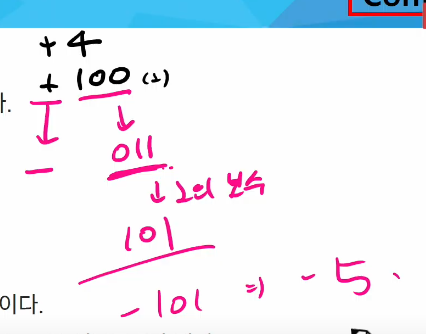 Con
+4
+ 100 (2)
다.
↓ ↓
- 011
↓ 2의 보수
101
이다.
- 101 => -5.